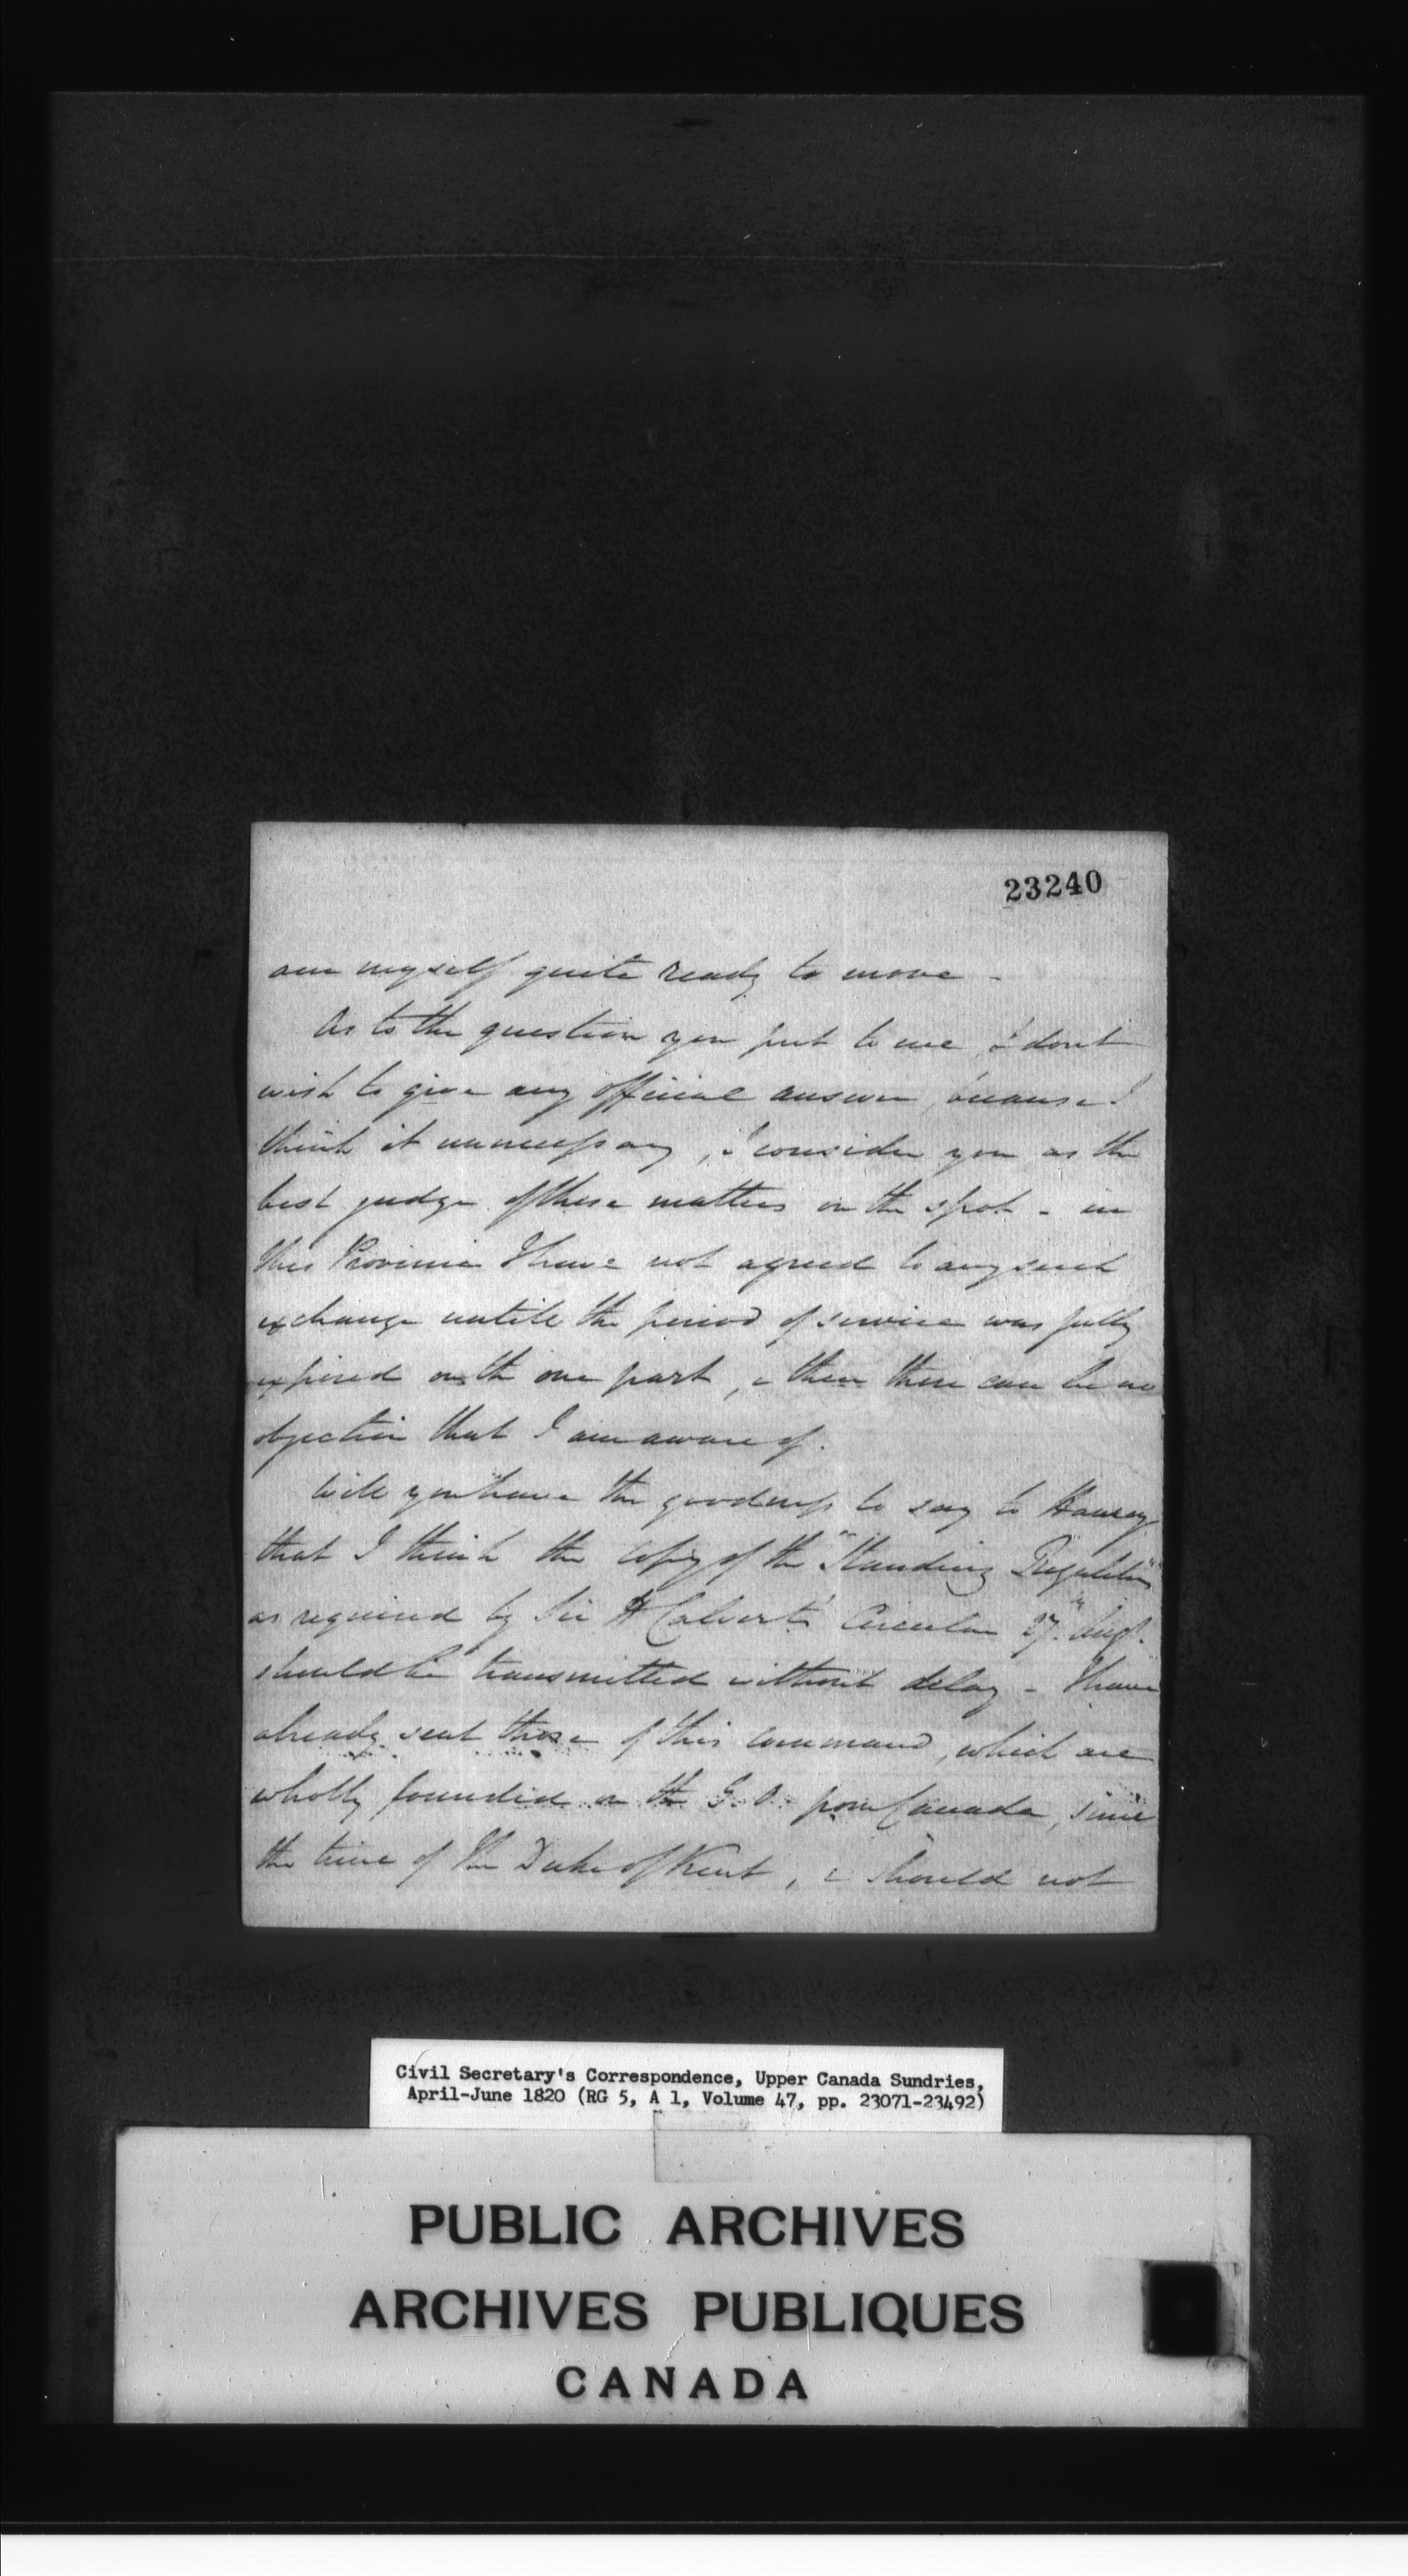 23240
am myself quite ready to move -
As to the question you put to me, I dont
wish to give any official answer, because I
think it unnecessary, & consider you as the
best judge of these matters on the spot - in
this Province I have not agreed to any such
exchange untill the period of service was fully
expired on the one part, & then there can be no
objection that I am aware of.
Will you have the goodness to say to Harvey
that I think the Copy of the "Standing Regulations"
as required by Sir H Calvert's Circular 27th Augt.
should be transmitted without delay - I have
already sent those of this Command, which are
wholly founded on the G. O. from Canada, since
the time of the Duke of Kent, & should not
Civil Secretary's Correspondence, Upper Canada Sundries,
April-June 1820 (RG 5, A 1, Volume 47, pp. 23071-23492)
PUBLIC ARCHIVES
ARCHIVES PUBLIQUES
CANADA